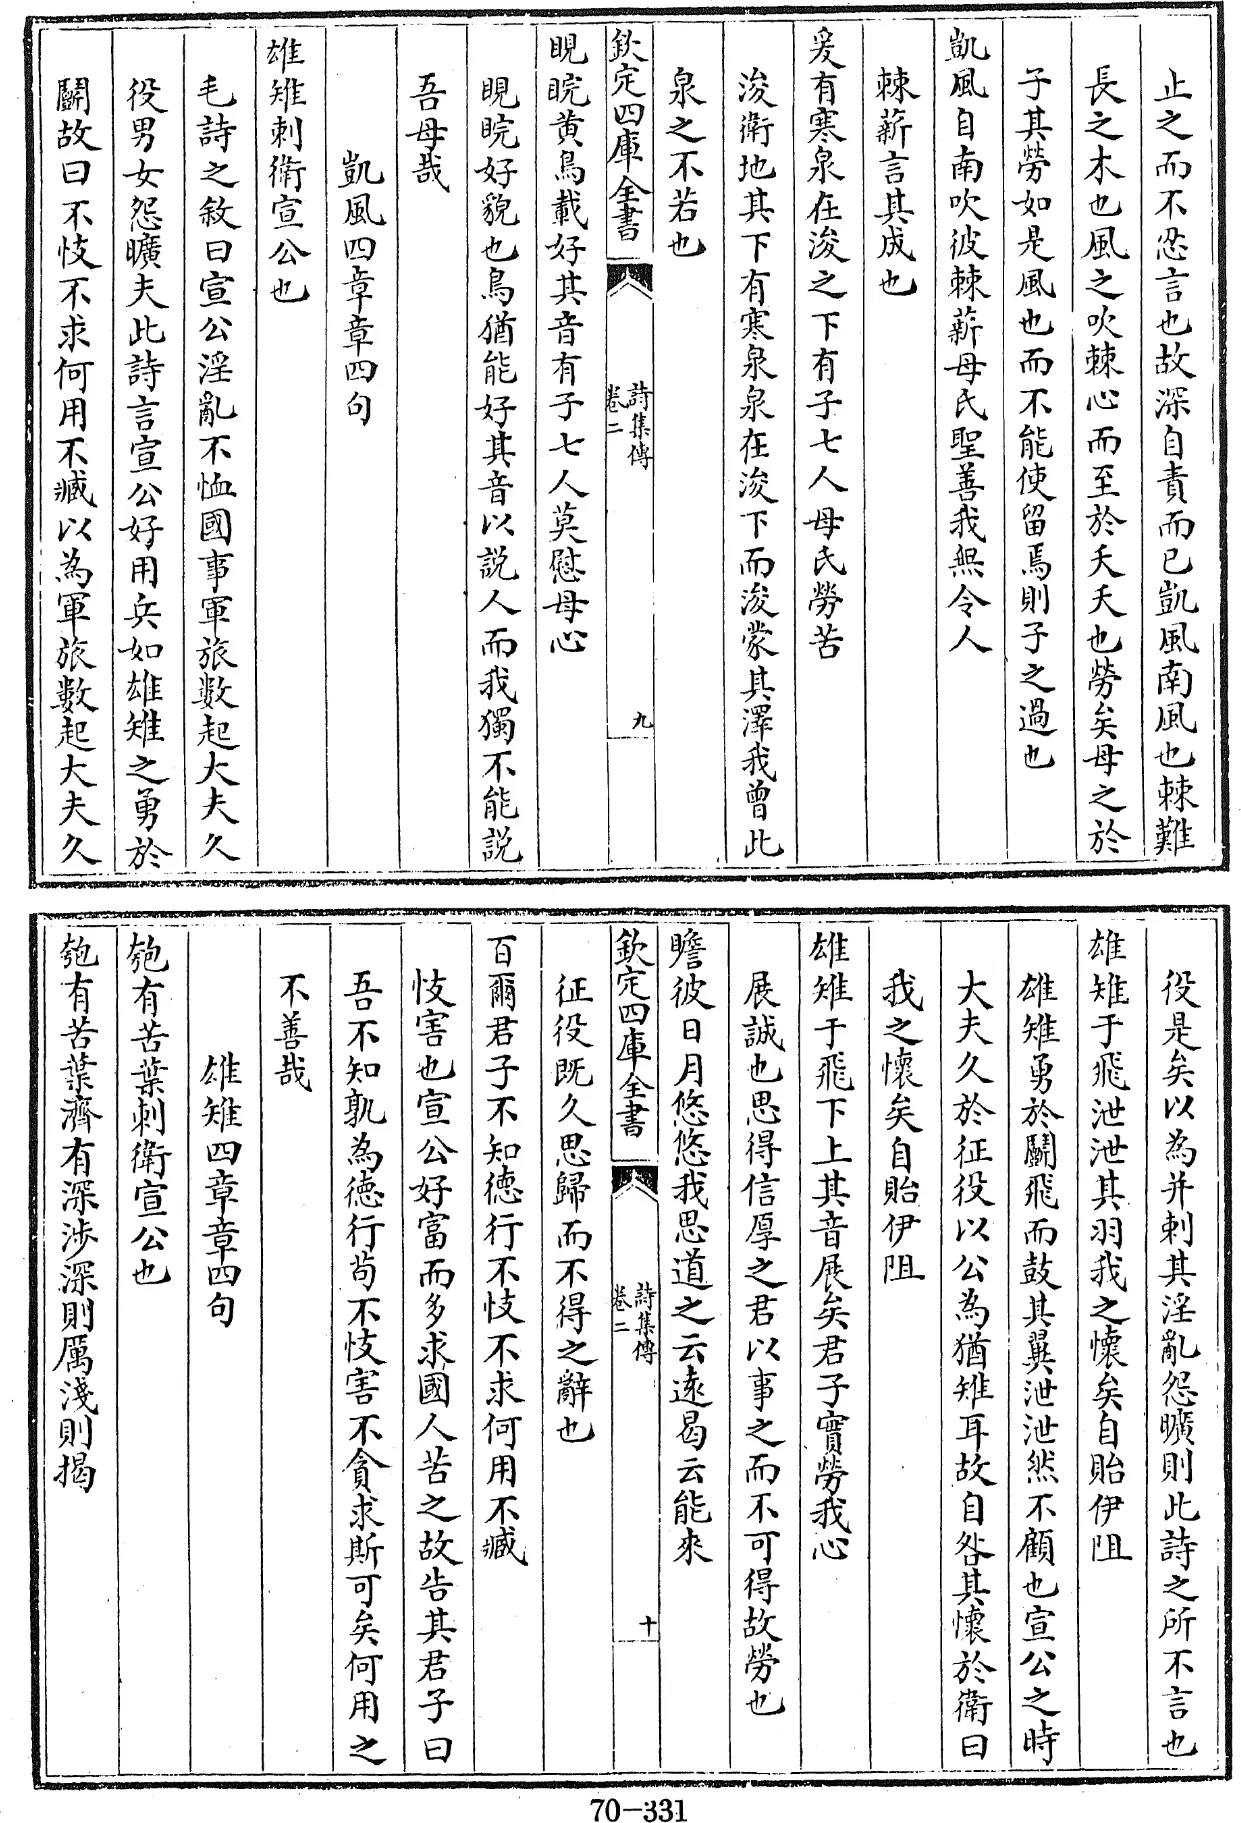 止之而不忍言也故深自責而已凱風南風也棘難
長之木也風之吹棘心而至於夭夭也勞矣母之於
子其勞如是風也而不能使留焉則子之過也
凱風自南吹彼棘薪母氏聖善我無令人
棘薪言其成也
爰有寒泉在浚之下有子七人母氏勞苦
浚衛地其下有寒泉泉在浚下而浚蒙其澤我曾此
泉之不若也
欽定四庫全書
詩集傳
卷二
九
睍睆黄鳥載好其音有子七人莫慰母心
睍睆好貌也鳥猶能好其音以説人而我獨不能説
吾母哉
凱風四章章四句
雄雉刺衛宣公也
毛詩之敘曰宣公淫亂不恤國事軍旅數起大夫久
役男女怨曠夫此詩言宣公好用兵如雄雉之勇於
鬭故曰不忮不求何用不臧以為軍旅數起大夫久
役是矣以為并刺其淫亂怨曠則此詩之所不言也
雄雉于飛泄泄其羽我之懷矣自貽伊阻
雄雉勇於鬭飛而鼓其翼泄泄然不顧也宣公之時
大夫久於征役以公為猶雉耳故自咎其懷於衛曰
我之懷矣自貽伊阻
雄雉于飛下上其音展矣君子實勞我心
展誠也思得信厚之君以事之而不可得故勞也
瞻彼日月悠悠我思道之云遠曷云能來
欽定四庫全書
詩集傳
卷二
十
征役既久思歸而不得之辭也
百爾君子不知德行不忮不求何用不臧
忮害也宣公好富而多求國人苦之故告其君子曰
吾不知孰為德行茍不忮害不貪求斯可矣何用之
不善哉
雄雉四章章四句
匏有苦葉刺衛宣公也
匏有苦葉濟有深涉深則厲淺則揭
70-331